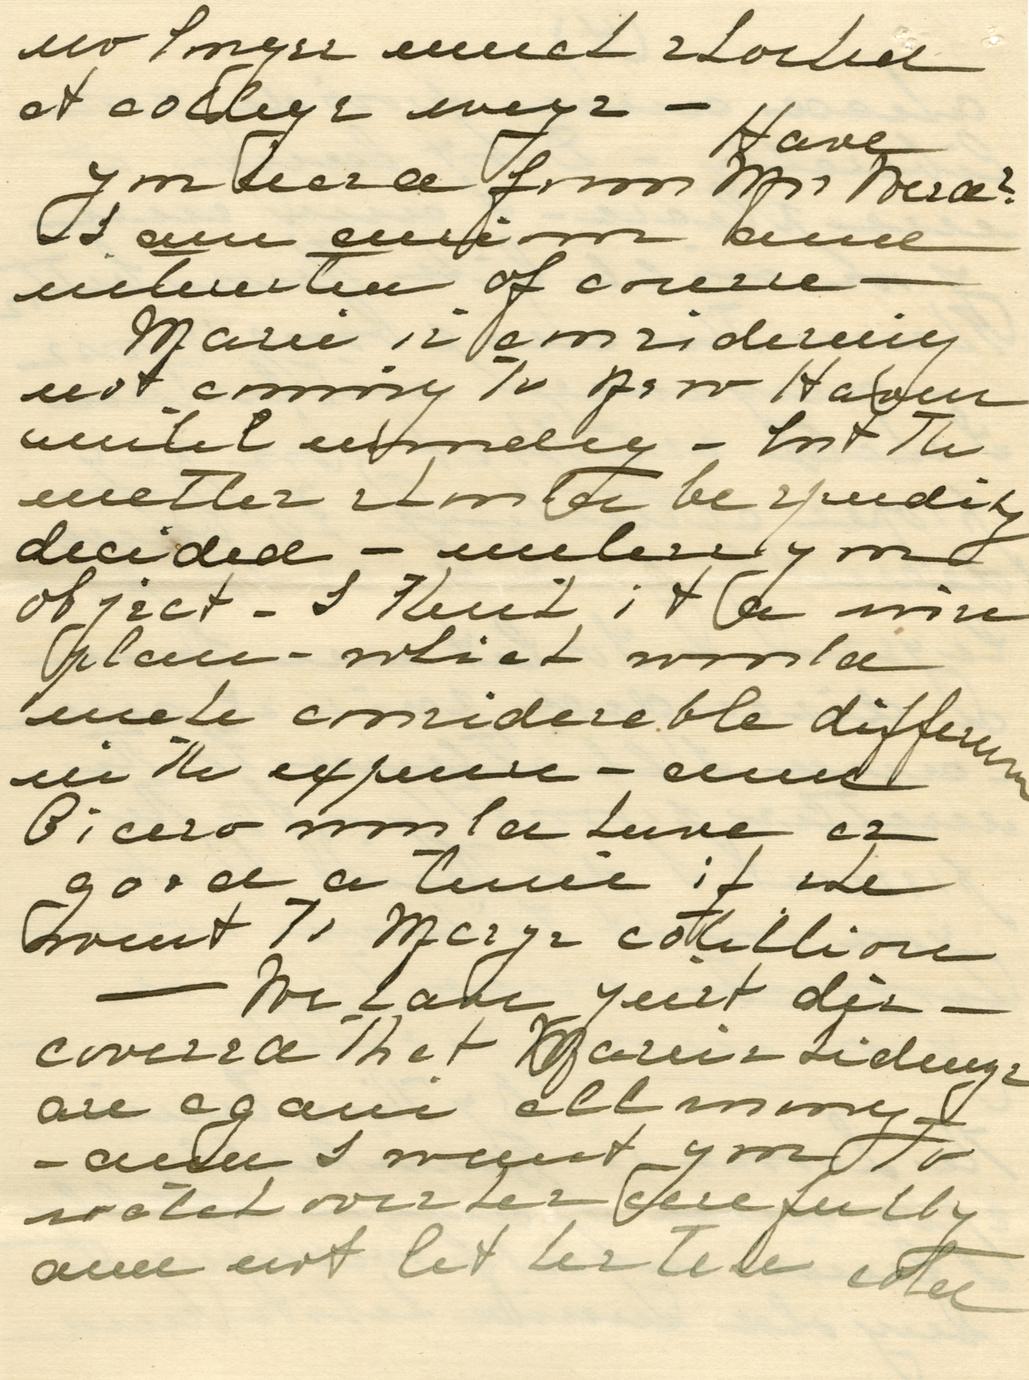 no longer much shocked
at college ways —
Have
you heard from Mr Ward?
I am anxious and
interested of course —
Marie is considering
not coming to New Haven
until monday - but the
matter should be speedily
decided — unless you
object - I think it a wise
plan - which would
make considerable difference
in the expense - and
Cicero would have as
good a time if she
went to Marys cotillion
— We have just dis -
covered that Maries kidneys
are again all wrong -
- and I want you to
watch over her carefully
and not let her take cold